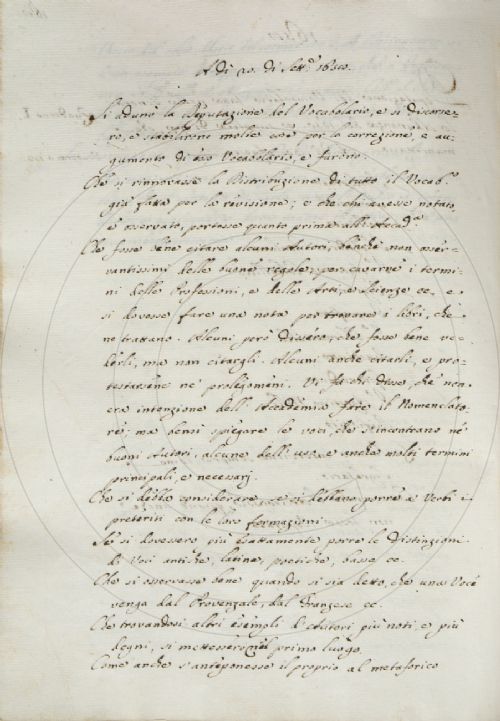 A dì 20. di Sett.e 1650.
Si adunò la Deputazione del Vocabolario, e si discorse-
ro, e stabilirono molte cose per la correzione, e au-
gumento di esso Vocabolario, e furono.
Che si rinnovasse la Distribuzione di tutto il Vocab.o
già fatta per la revisione; e che chi avesse notato,
e osservato, portasse quanto prima all'Accad.a
Che fosse bene citare alcuni Autori, benchè non osser-
vantissimi delle buone regole, per cavarne i termi-
ni delle Professioni, e delle Arti, e Scienze ec. e
si dovesse fare una nota per trovare i libri, che
ne trattano. Alcuni però dissero, che fosse bene ve-
derli, ma non citargli. Alcuni anche citarli, e pro-
testarsene ne' prolegomeni. Vi fu chi disse, che non
era intenzione dell'Accademia fare il Nomenclato-
re; ma bensì spiegare le voci, che s'incontrano ne'
buoni Autori, alcune dell'uso, e anche molti termini
principali, e necessarj.
Che si debba considerare, se si debbano porre a' Verbi i
preteriti con le loro formazioni.
Se si dovessero più esattamente porre le Distinzioni
di Voci antiche, latine, poetiche, basse ec.
Che si osservasse bene quando si sia detto, che una Voce
venga dal Provenzale, dal Franzese ec.
Che trovandosi altri esempli d'Autori più noti, e più
degni, si mettessero nel primo luogo.
Come anche s'anteponesse il proprio al metaforico